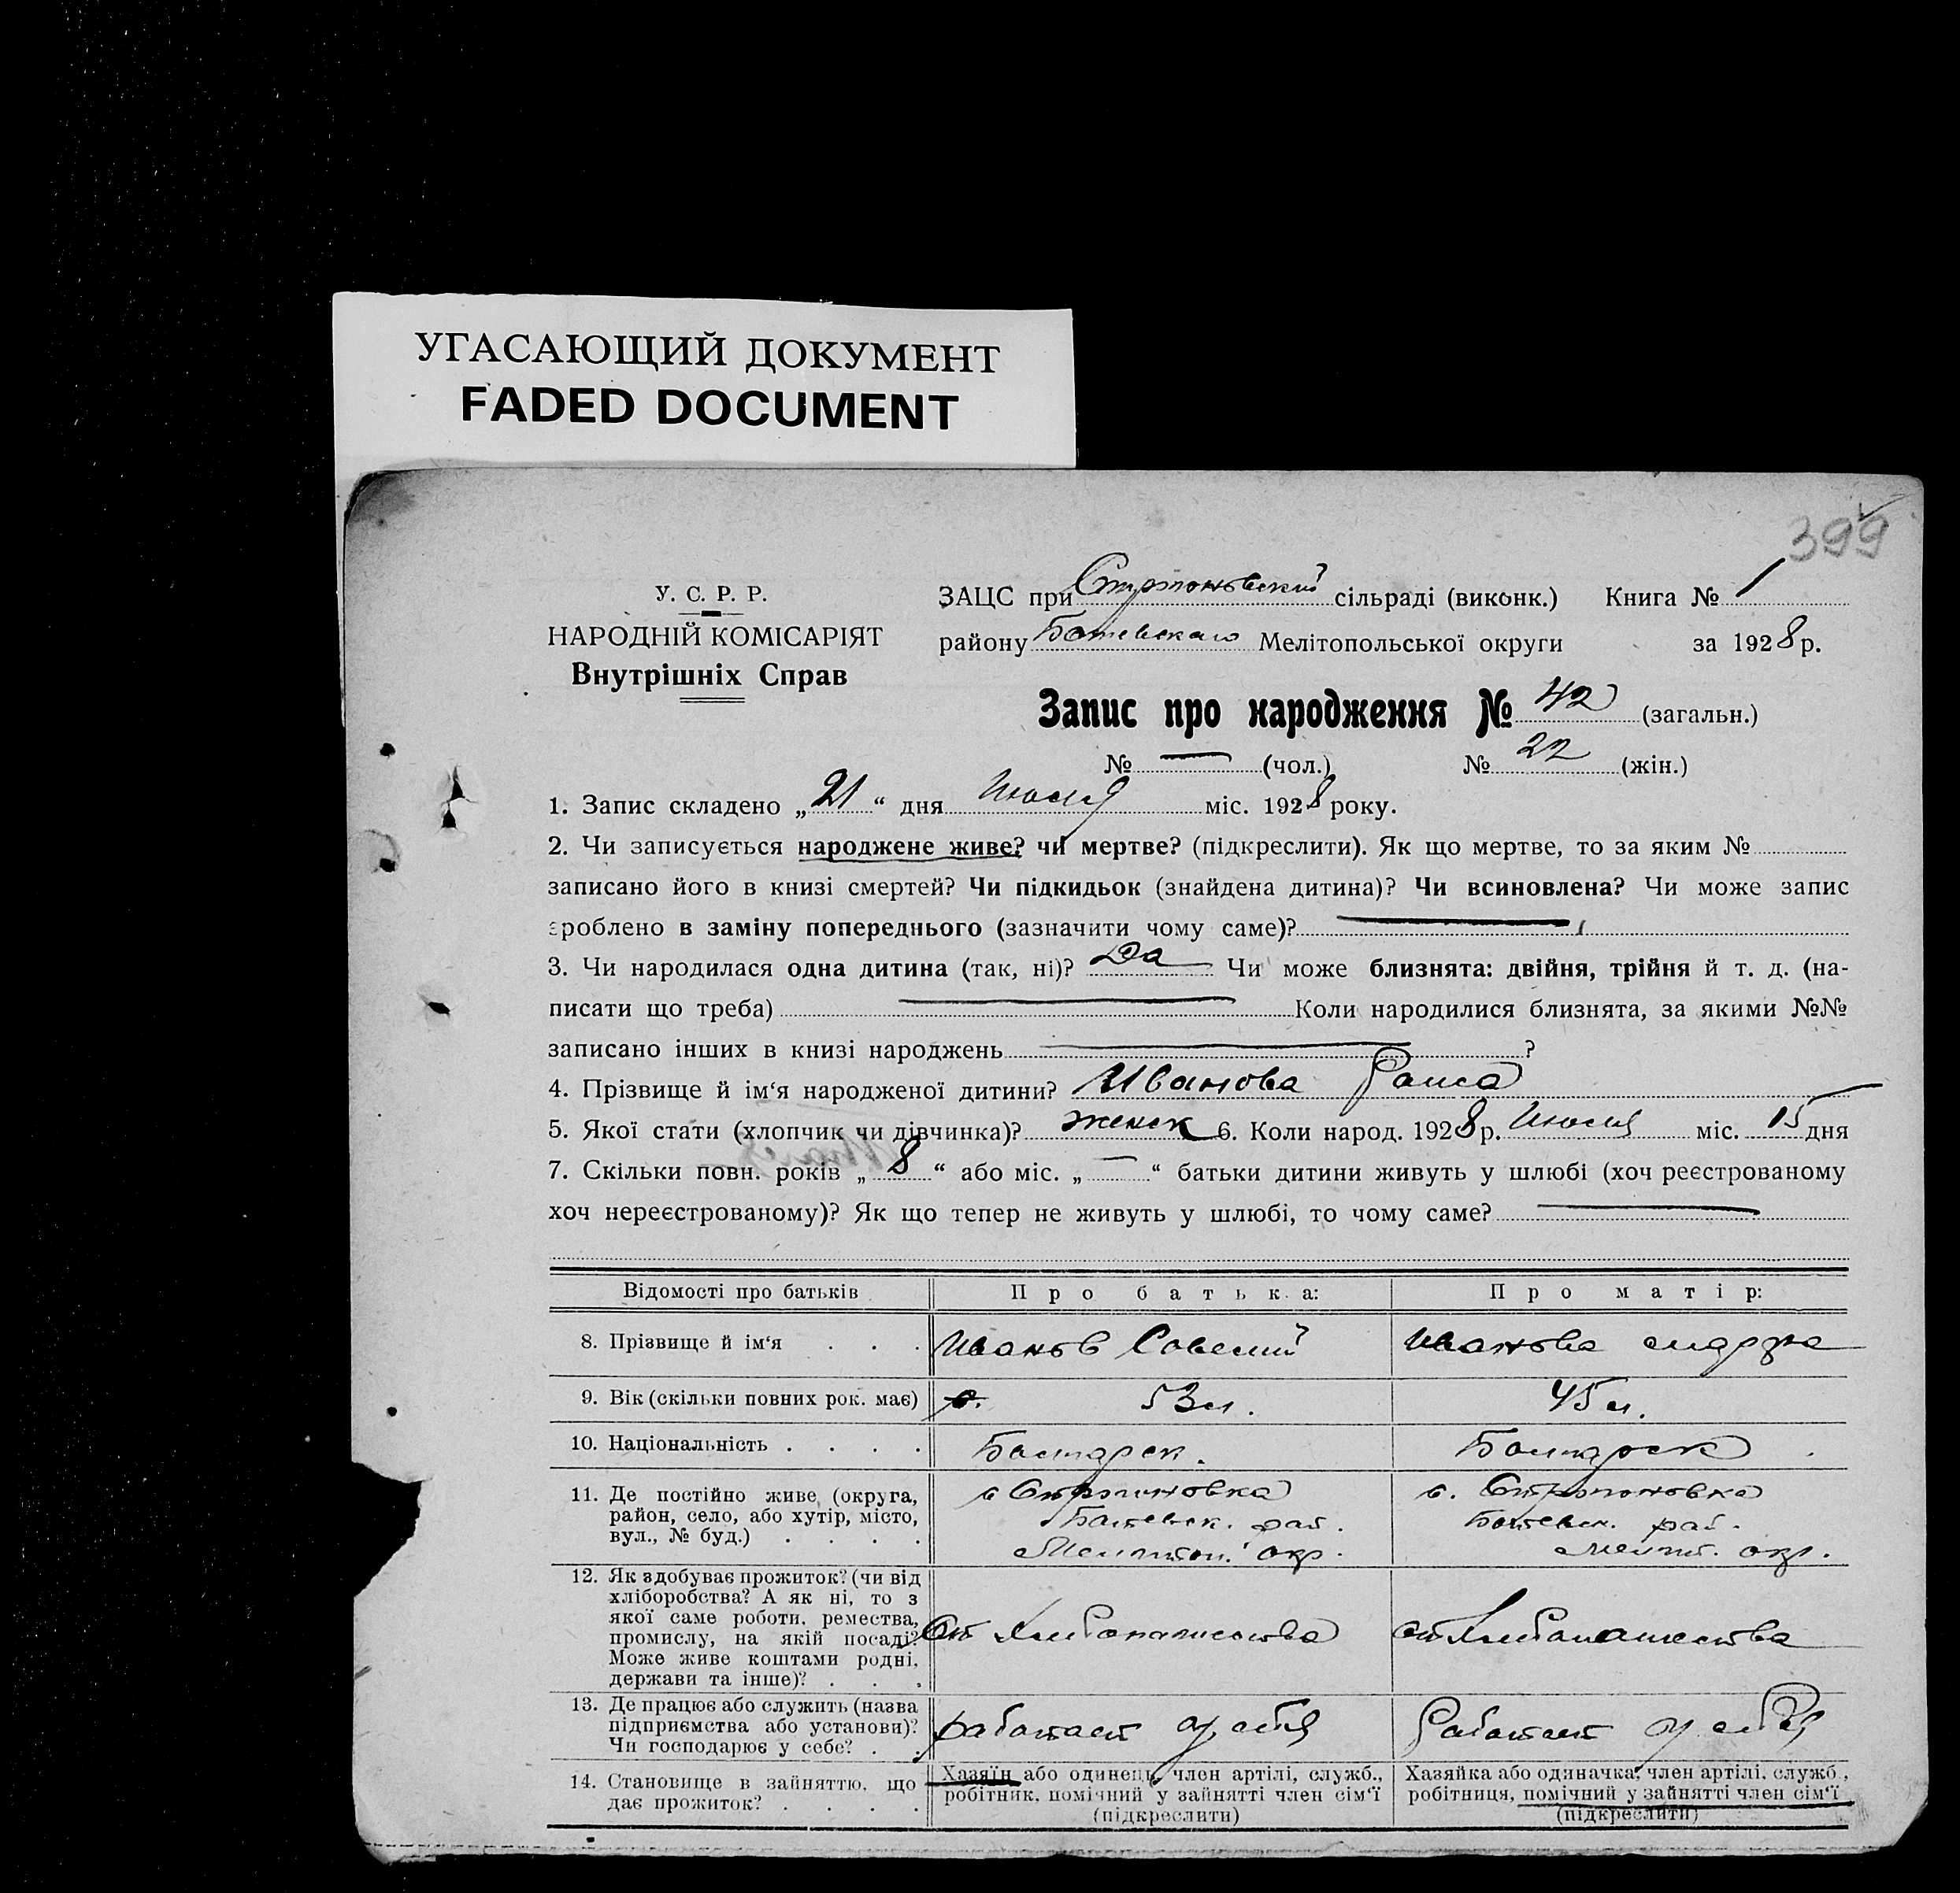 УГАСАЮЩИЙ ДОКУМЕНТ
FADED DOCUMENT
399
У. С. Р. Р.
НАРОДНІЙ КОМІСАРІЯТ
Внутрішніх Справ
ЗАЦС при сільраді (виконк.) Книга № 1
району Ботевского Мелітопольської округи за 1928 р.
Запис про народження № 42 (загальн.)
№ — (чол.) № 22 (жін.)
1. Запис складено „21“ дня Июля міс. 1928 року.
2. Чи записується народжене живе? чи мертве? (підкреслити). Як що мертве, то за яким №
записано його в книзі смертей? Чи підкидьок (знайдена дитина)? Чи всиновлена? Чи може запис
зроблено в заміну попереднього (зазначити чому саме)? —
3. Чи народилася одна дитина (так, ні)? Да Чи може близнята: двійня, трійня й т. д. (на-
писати що треба) — Коли народилися близнята, за якими №№
записано інших в книзі народжень — ?
4. Прізвище й ім‘я народженої дитини? Иванова Раиса
5. Якої стати (хлопчик чи дівчинка)? женск 6. Коли народ. 1928 р. Июля міс. 15 дня
7. Скільки повн. років „8“ або міс. „—“ батьки дитини живуть у шлюбі (хоч реєстрованому
хоч нереєстрованому)? Як що тепер не живуть у шлюбі, то чому саме? —
Відомості про батьків Про батька: Про матір:
8. Прізвище й ім‘я . . . Иванов Савелий Иванова
9. Вік (скільки повних рок. має) 53 л. 45 л.
10. Національність . . . . Болгарск. Болгарск
11. Де постійно живе (округа, район, село, або хутір, місто, вул., № буд.) . . . .
Ботевск. рай. Ботевск. рай.
Мелитоп. окр. Мелит. окр.
12. Як здобуває прожиток? (чи від
хліборобства? А як ні, то з
якої саме роботи, ремества,
промислу, на якій посаді? От хлебопашества от хлебопашества
Може живе коштами родні,
держави та інше)? . . .
13. Де працює або служить (назва
підприємства або установи)? работает у себя Работает у себя
Чи господарює у себе? . .
14. Становище в зайняттю, що
дає прожиток? . . . .
Хазяїн або одинець, член артілі, служб.,
робітник, помічний у зайнятті член сім‘ї
(підкреслити)
Хазяйка або одиначка, член артілі, служб.,
робітниця, помічний у зайнятті член сім‘ї
(підкреслити)